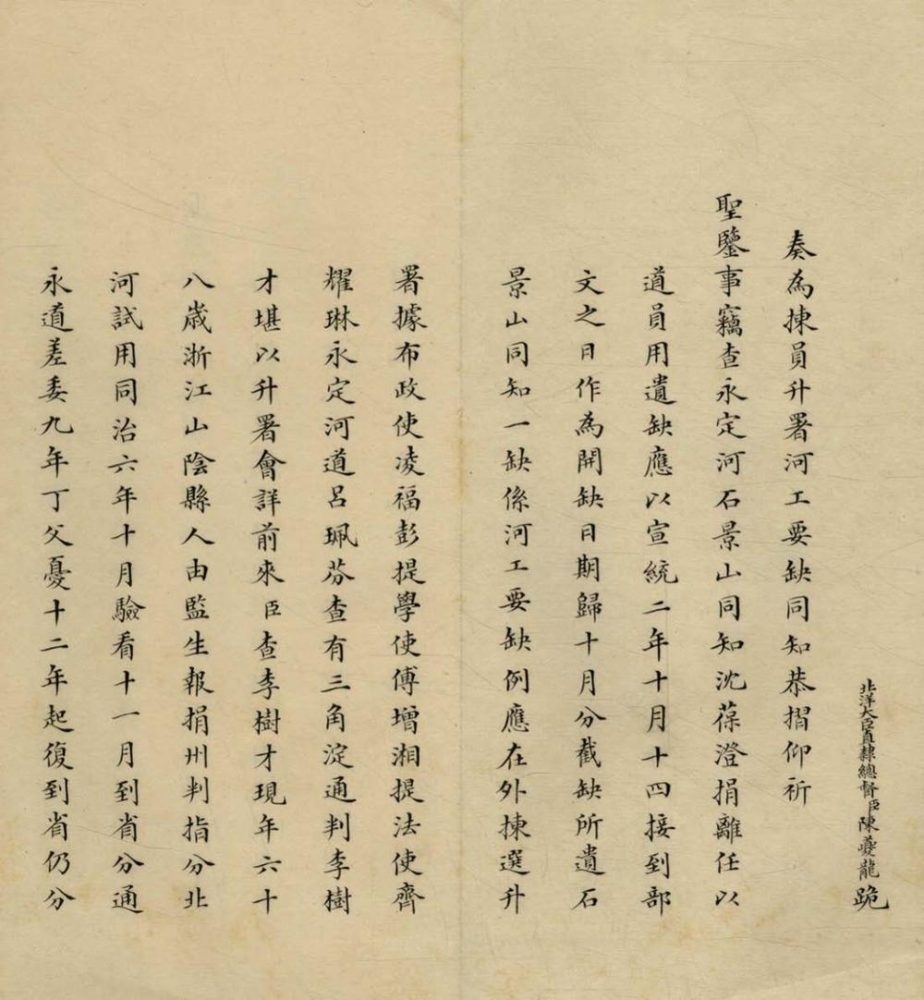 北洋大臣直隸總督臣陳夔龍跪
奏為揀員升署河工要缺同知恭摺仰祈
聖鑒事竊查永定河石景山同知沈葆澄捐離任以
道員用遺缺應以宣統二年十月十四接到部
文之日作為開缺日期歸十月分截缺所遺石
景山同知一缺係河工要缺例應在外揀選升
署據布政使凌福彭提學使傅增湘提法使齊
耀琳永定河道呂珮芬查有三角淀通判李樹
才堪以升署會詳前來臣查李樹才現年六十
八歲浙江山陰縣人由監生報捐州判指分北
河試用同治六年十月驗看十一月到省分通
永道差委九年丁父憂十二年起復到省仍分